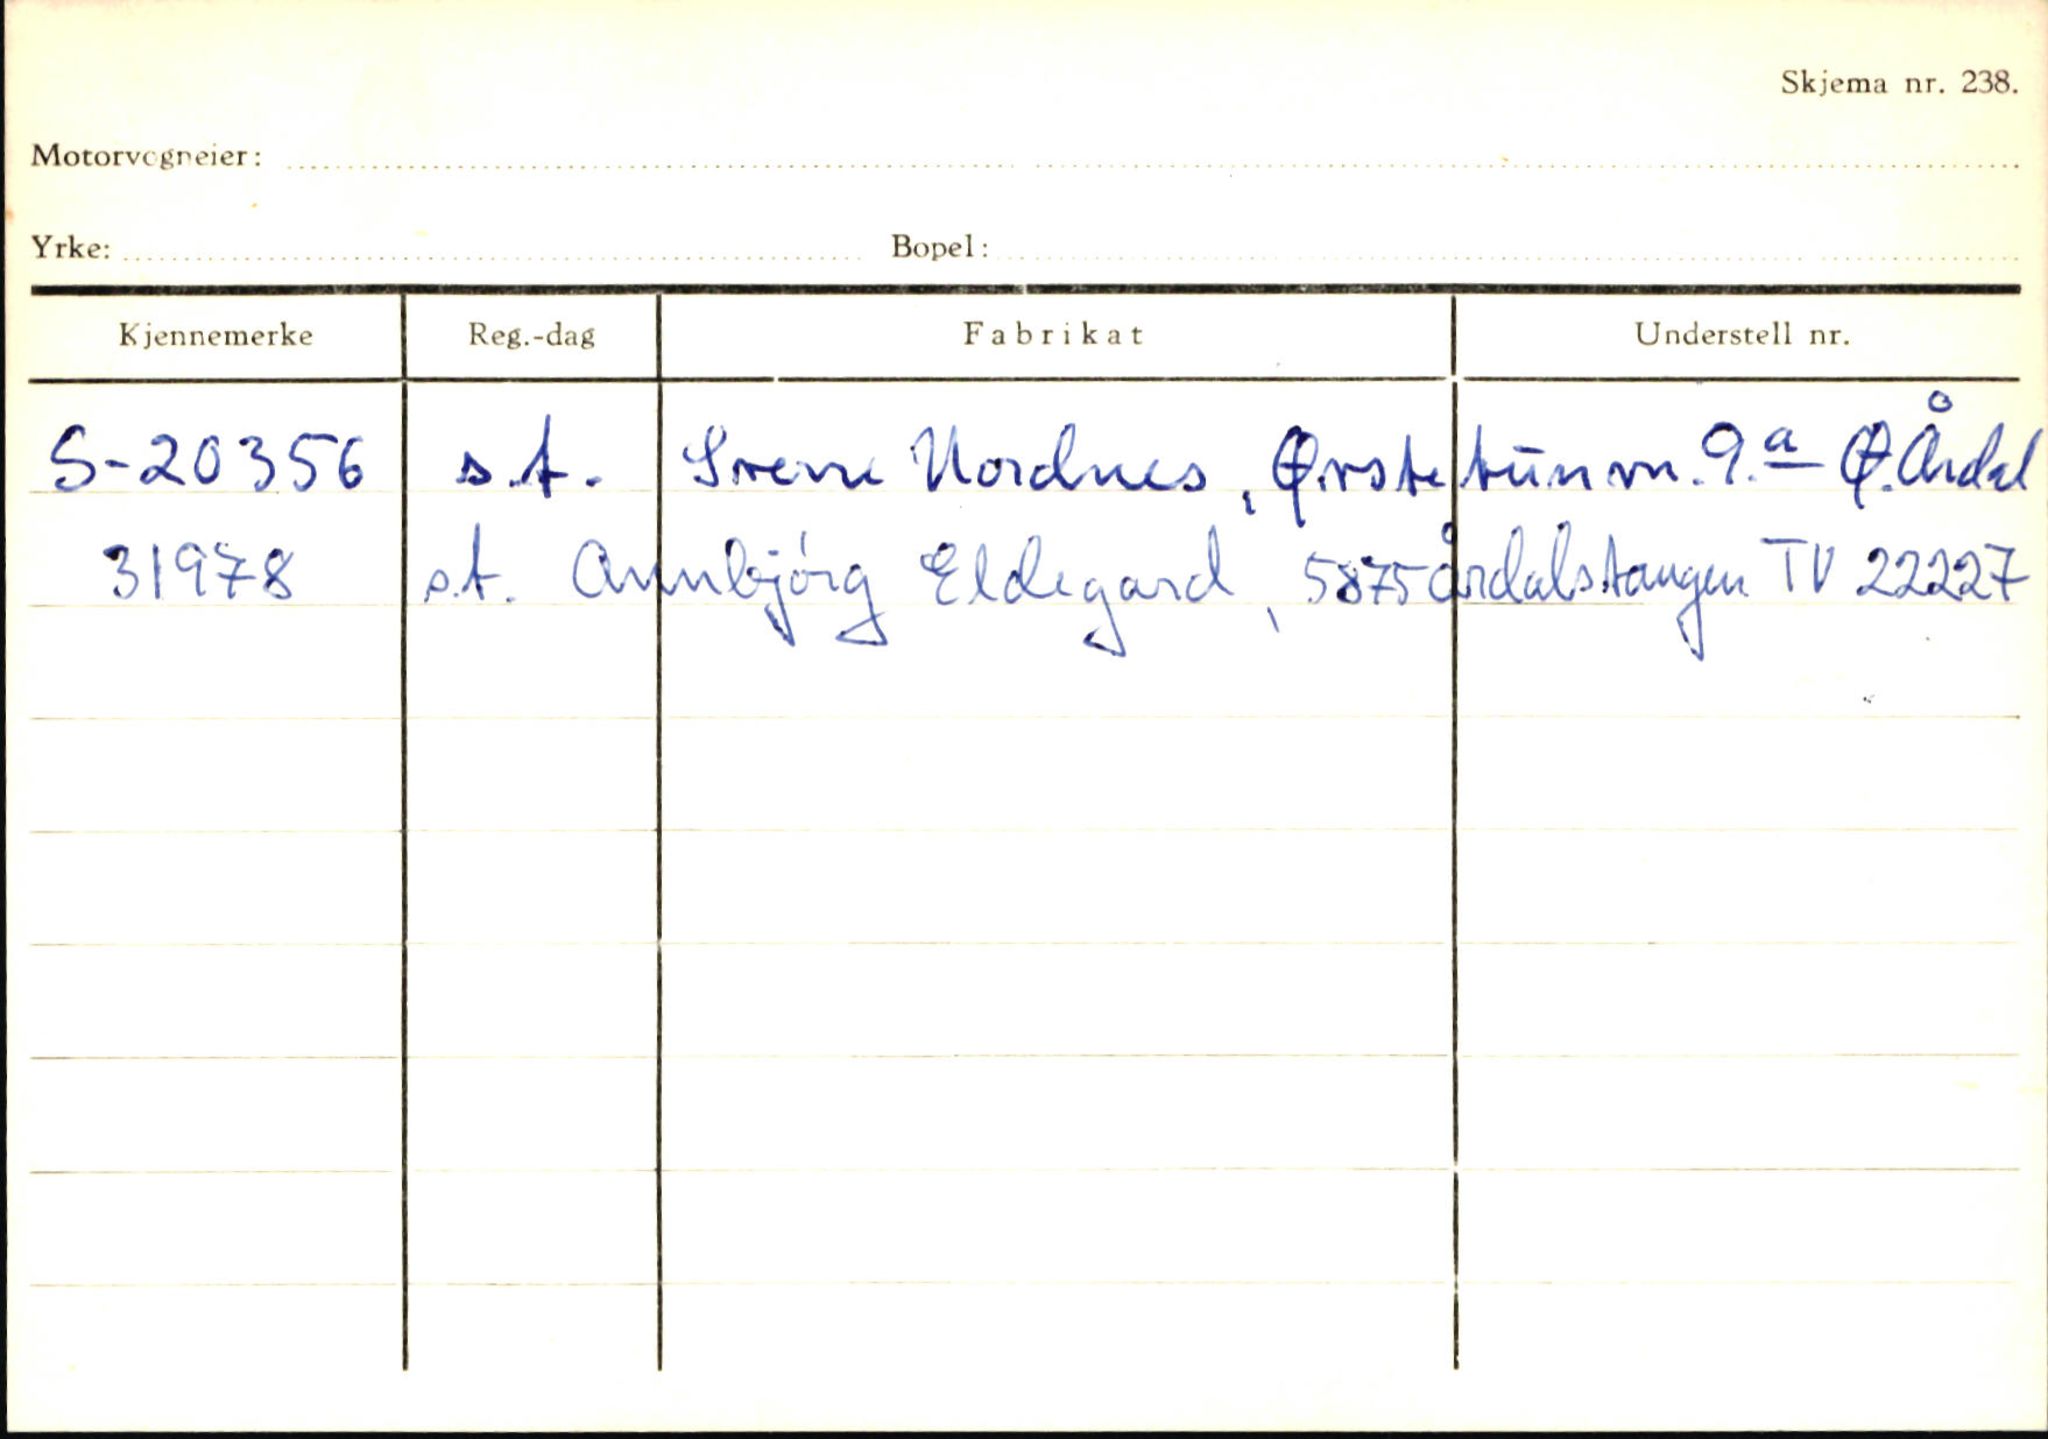 Skjema nr. 238.
Motorvogneier:
Yrke: Bopel:
Kjennemerke Reg.-dag Fabrikat Understell nr.
S-20356 s.t. Irene Nordnes, Ørstetünvn. 9.a Ø.Årdal
31978 s.t. Annbjørg Eldegard, 5875 Årdalstangen TV 22227